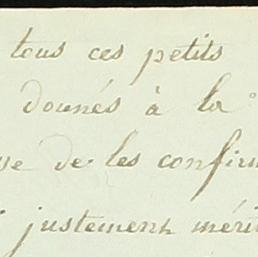 tous ces petits
donnés à la
de les confir
justement mérit